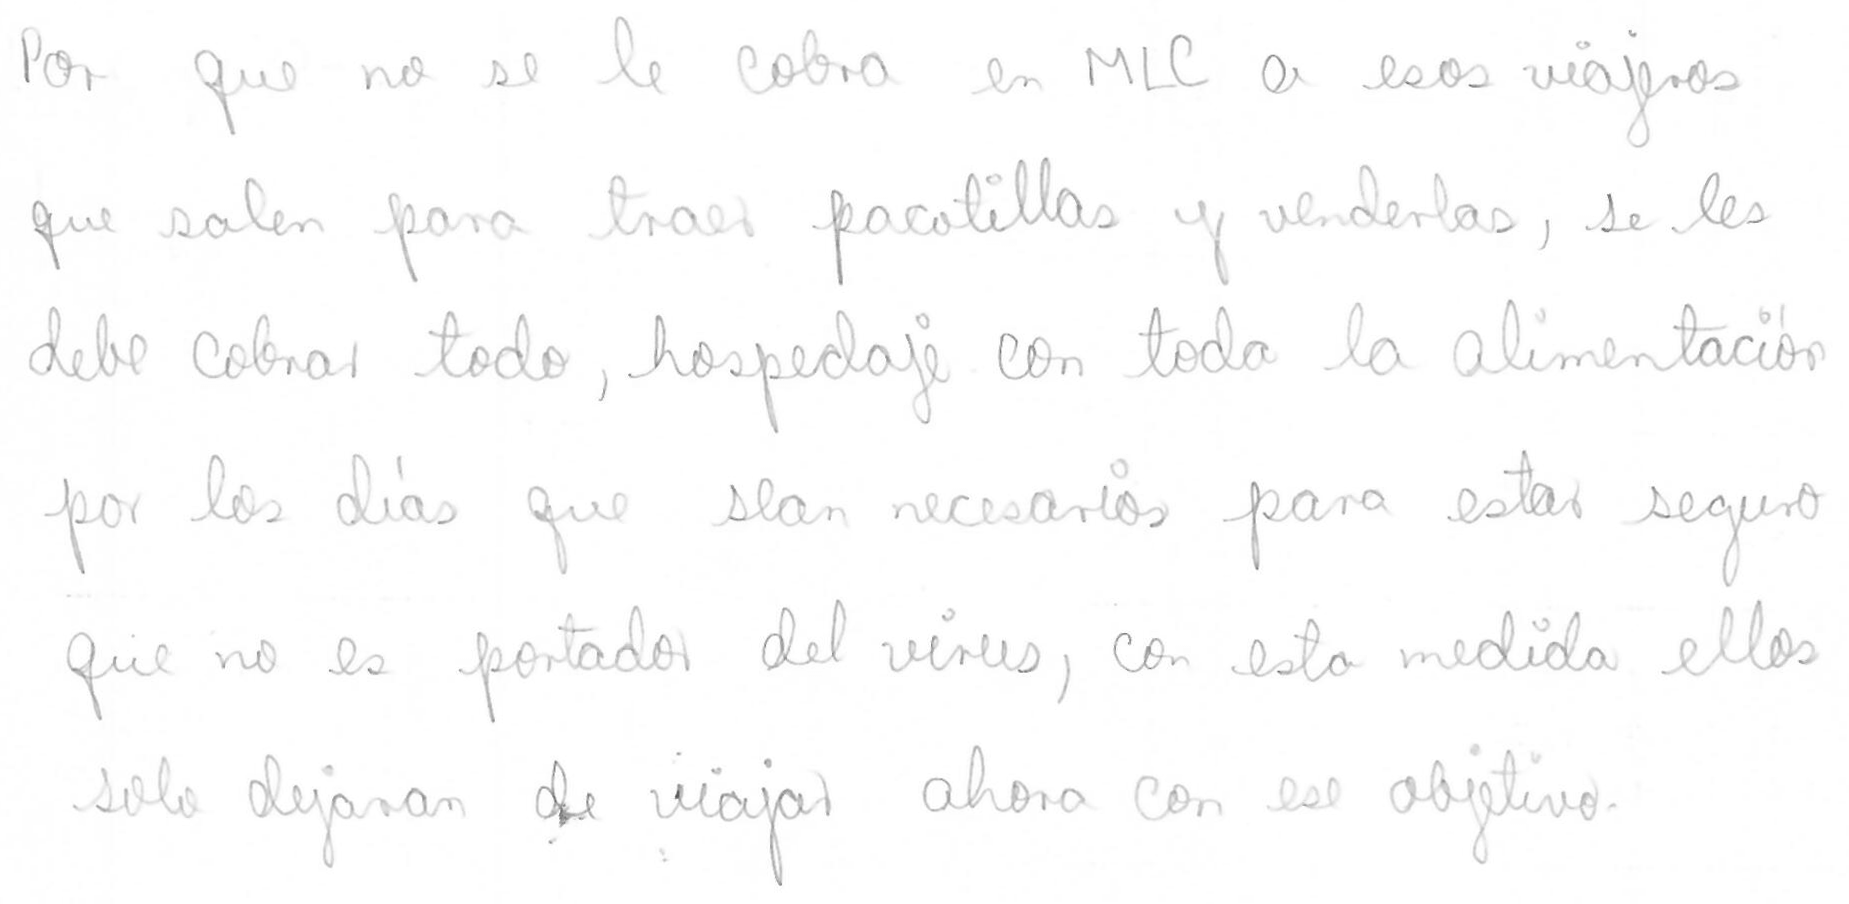 Por que no se le cobra en MLC a esos viajeros
que salen para traer pacotillas y venderlas, se les
debe cobrar todo, hospedaje con toda la alimentación
por los días que sean necesarios para estar seguro
que no es portador del virus, con esta medida ellos
solo dejaran de viajar ahora con ese objetivo.